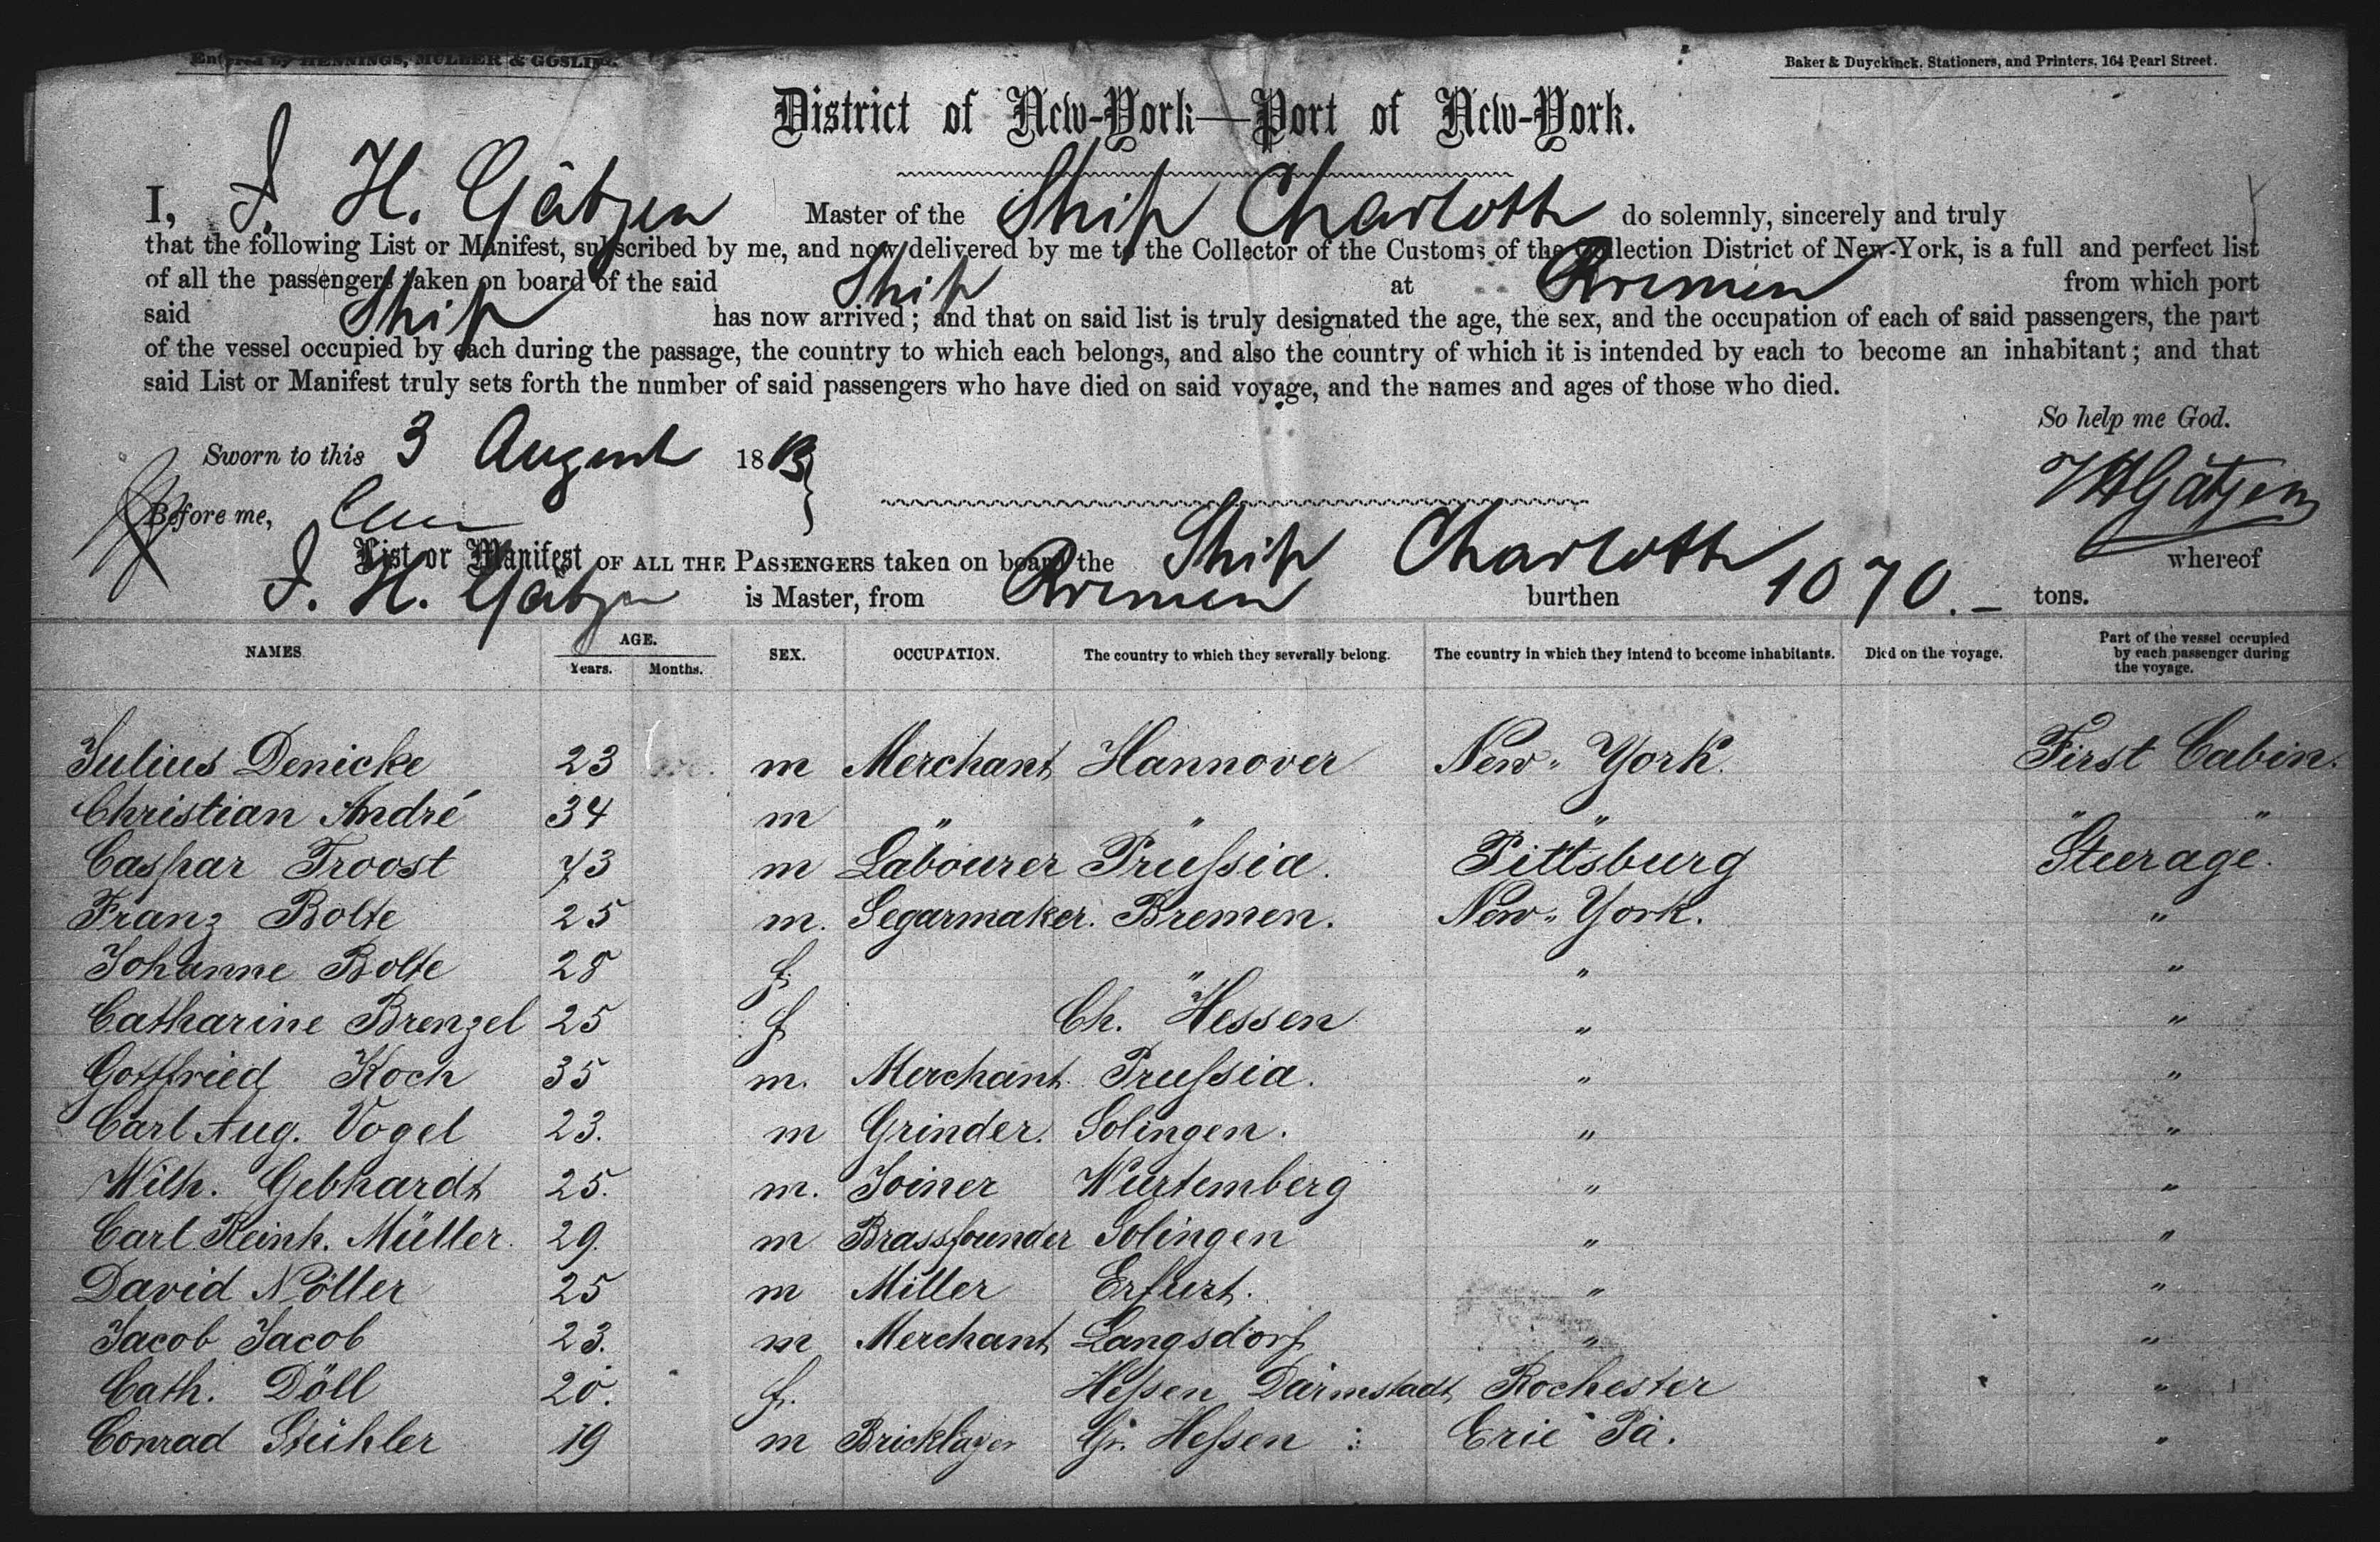 Entered by HENNINGS, MULLER & GOSLING.
Baker & Duyckinck, Stationers, and Printers, 164 Pearl Street.
District of New-York—Port of New-York.
I, J. H. Gätjen Master of the Ship Charlotte do solemnly, sincerely and truly
that the following List or Manifest, subscribed by me, and now delivered by me to the Collector of the Customs of the Collection District of New-York, is a full and perfect list
of all the passengers taken on board of the said Ship at Bremen from which port
said Ship has now arrived; and that on said list is truly designated the age, the sex, and the occupation of each of said passengers, the part
of the vessel occupied by each during the passage, the country to which each belongs, and also the country of which it is intended by each to become an inhabitant; and that
said List or Manifest truly sets forth the number of said passengers who have died on said voyage, and the names and ages of those who died.
So help me God.
Sworn to this 3 August 18
Before me,
JHGätjen
List or Manifest OF ALL THE PASSENGERS taken on board the Ship Charlotte whereof
J. H. Gätjen is Master, from Bremen burthen 1070.– tons.
NAMES. AGE. Years. Months. SEX. OCCUPATION. The country to which they severally belong. The country in which they intend to become inhabitants. Died on the voyage. Part of the vessel occupied by each passenger during the voyage.
Julius Denicke 23 m Merchant Hannover New-York. First Cabin.
Christian André 34 m " " " " "
Caspar Troost 73 m Labourer Prussia. Pittsburg Steerage.
Franz Bolte 25 m. Segarmaker. Bremen. New-York. "
Johanne Bolte 28 f. " " "
Catharine Brenzel 25 f Ch. Hessen " "
Gottfried Koch 35 m. Merchant Prussia. " "
Carl Aug. Vogel 23. m Grinder. Solingen. " "
Wilh. Gebhardt 25. m. Joiner Wurtemberg " "
Carl Reinh. Müller. 29. m Brassfounder Solingen " "
David Nöller 25 m Miller Erfurt. " "
Jacob Jacob 23. m Merchant Langsdorf " "
Cath. Döll 20. f. Hessen Darmstadt Rochester "
Conrad Stühler 19 m Bricklayer Gr. Hessen : Erie Pa. "